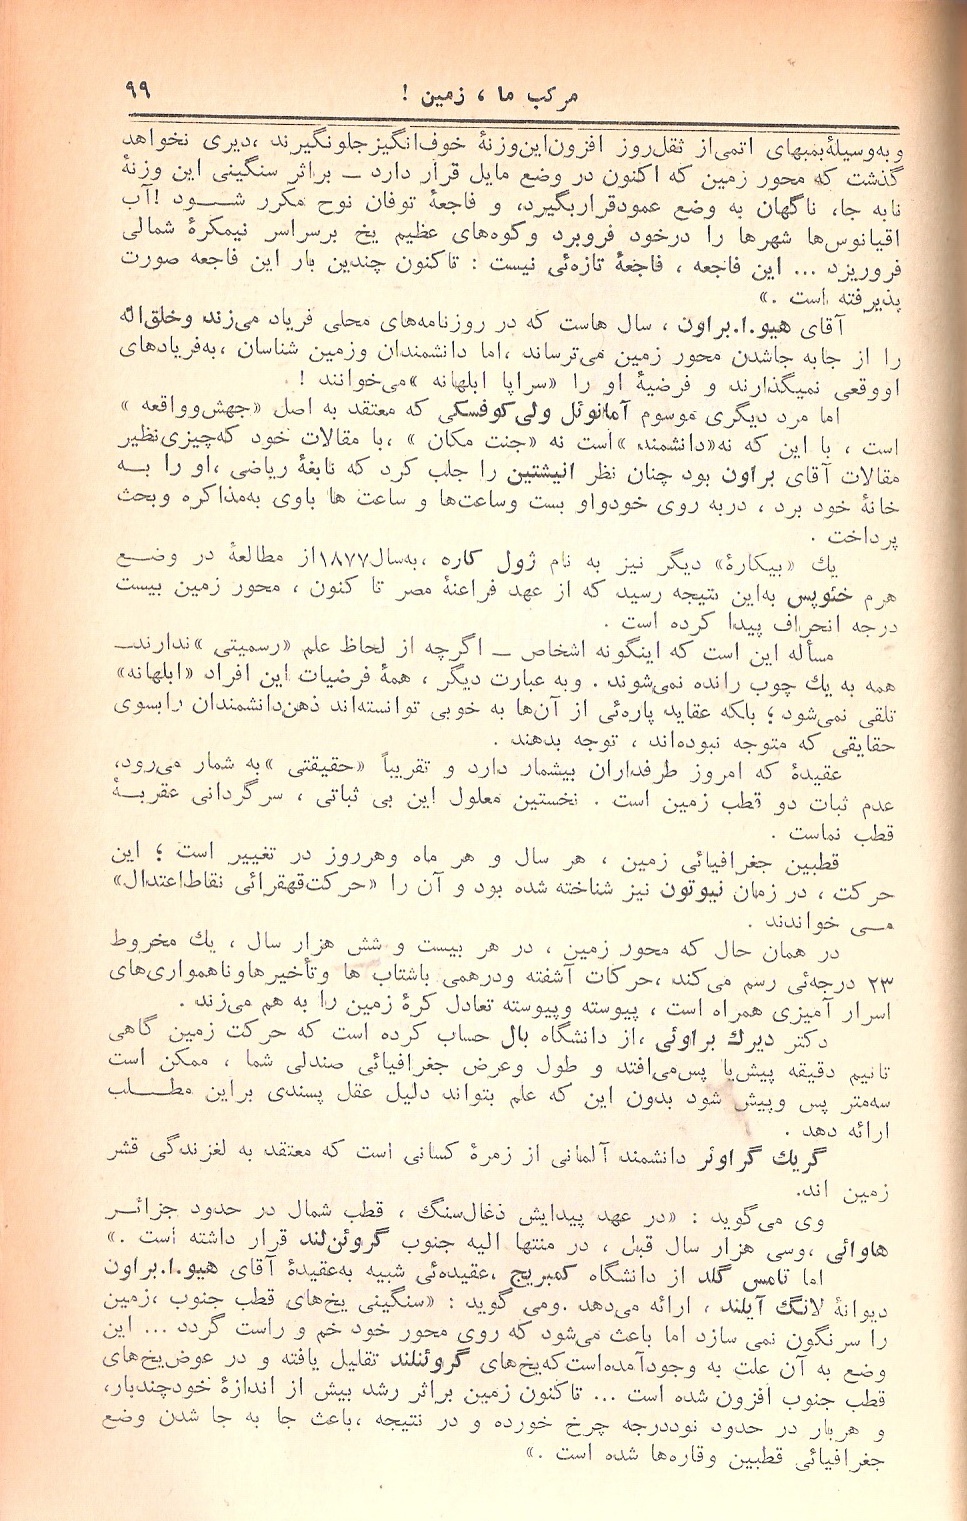 مرکب ما ، زمین !
۹۹
و به‌وسیلهٔ بمبهای اتمی از ثقل روز افزون این وزنهٔ خوف‌انگیز جلونگیرند ، دیری نخواهد
گذشت که محور زمین که اکنون در وضع مایل قرار دارد ــ براثر سنگینی این وزنهٔ
نابه جا، ناگهان به وضع عمود قرار بگیرد، و فاجعهٔ توفان نوح مکرر شــود ! آب
اقیانوس‌ها شهرها را درخود فروبرد وکوه‌های عظیم یخ برسراسر نیمکرهٔ شمالی
فروریزد ... این فاجعه ، فاجعهٔ تازه‌ئی نیست : تاکنون چندین بار این فاجعه صورت
پذیرفته است .»
آقای هیو.ا.براون ، سال هاست که در روزنامه‌های محلی فریاد می‌زند وخلق‌اله
را از جابه جاشدن محور زمین می‌ترساند ، اما دانشمندان وزمین شناسان ، به‌فریادهای
اووقعی نمیگذارند و فرضیهٔ او را «سراپا ابلهانه » می‌خوانند !
اما مرد دیگری موسوم آمانوئل ولی‌کوفسکی که معتقد به اصل «جهش‌وواقعه »
است ، با این که نه«دانشمند » است نه «جنت مکان » ، با مقالات خود که‌چیزی‌نظیر
مقالات آقای براون بود چنان نظر انیشتین را جلب کرد که نابغهٔ ریاضی ، او را بــه
خانهٔ خود برد ، دربه روی خودواو بست وساعت‌ها و ساعت ها باوی به‌مذاکره وبحث
پرداخت .
یك «بیکارهٔ» دیگر نیز به نام ژول کاره ، به‌سال۱۸۷۷از مطالعهٔ در وضــع
هرم خئوپس به‌این نتیجه رسید که از عهد فراعنهٔ مصر تا کنون ، محور زمین بیست
درجه انحراف پیدا کرده است .
مسأله این است که اینگونه اشخاص ــ اگرچه از لحاظ علم «رسمیتی » ندارند ــ
همه به یك چوب رانده نمی‌شوند . وبه عبارت دیگر ، همهٔ فرضیات این افراد «ابلهانه»
تلقی نمی‌شود ؛ بلکه عقاید پاره‌ئی از آن‌ها به خوبی توانسته‌اند ذهن‌دانشمندان رابسوی
حقایقی که متوجه نبوده‌اند ، توجه بدهند .
عقیدهٔ که امروز طرفداران بیشمار دارد و تقریباً «حقیقتی » به شمار می‌رود،
عدم ثبات دو قطب زمین است . نخستین معلول این بی ثباتی ، سرگردانی عقربــهٔ
قطب نماست .
قطبین جغرافیائی زمین ، هر سال و هر ماه وهرروز در تغییر است ؛ این
حرکت ، در زمان نیوتون نیز شناخته شده بود و آن را «حرکت‌قهقرائی نقاط‌اعتدال»
مــی خواندند .
در همان حال که محور زمین ، در هر بیست و شش هزار سال ، یك مخروط
۲۳ درجه‌ئی رسم می‌کند ، حرکات آشفته ودرهمی باشتاب ها وتأخیرهاوناهمواری‌های
اسرار آمیزی همراه است ، پیوسته وپیوسته تعادل کرهٔ زمین را به هم می‌زند .
دکتر دیرك براوئی ، از دانشگاه یال حساب کرده است که حرکت زمین گاهی
تانیم دقیقه پیش‌یا پس‌می‌افتد و طول وعرض جغرافیائی صندلی شما ، ممکن است
سه‌متر پس وپیش شود بدون این که علم بتواند دلیل عقل پسندی براین مطــلب
ارائه دهد .
گریك گراوئر دانشمند آلمانی از زمرهٔ کسانی است که معتقد به لغزندگی قشر
زمین اند.
وی می‌گوید : «در عهد پیدایش ذغال‌سنگ ، قطب شمال در حدود جزائــر
هاوائی ، وسی هزار سال قبل ، در منتها الیه جنوب گروئن‌لند قرار داشته است .»
اما تامس گلد از دانشگاه کمبریج ، عقیده‌ئی شبیه به‌عقیدهٔ آقای هیو.ا.براون
دیوانهٔ لانگ آیلند ، ارائه می‌دهد .ومی گوید : «سنگینی یخ‌های قطب جنوب ، زمین
را سرنگون نمی سازد اما باعث می‌شود که روی محور خود خم و راست گردد ... این
وضع به آن علت به وجودآمده‌است‌که‌یخ‌های گروئنلند تقلیل یافته و در عوض‌یخ‌های
قطب جنوب افزون شده است ... تاکنون زمین براثر رشد بیش از اندازهٔ خودچندبار،
و هربار در حدود نوددرجه چرخ خورده و در نتیجه ، باعث جا به جا شدن وضع
جغرافیائی قطبین وقاره‌ها شده است .»